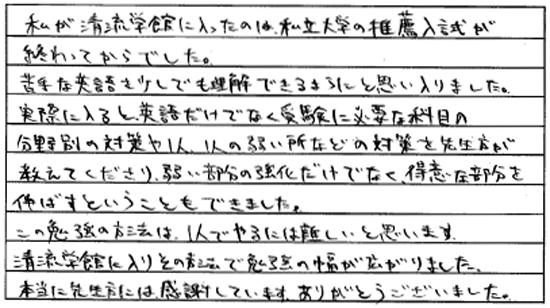 私が清流学館に入ったのは、私立大学の推薦入試が
終わってからでした。
苦手な英語を少しでも理解できるようにと思い入りました。
実際に入ると、英語だけでなく受験に必要な科目の
分野別の対策や1人、1人の弱い所などの対策を先生方が
教えてくださり、弱い部分の強化だけでなく、得意な部分を
伸ばすということもできました。
この勉強の方法は、1人でやるには難しいと思います。
清流学館に入りその方法で勉強の幅が広がりました。
本当に先生方には感謝しています。ありがとうございました。